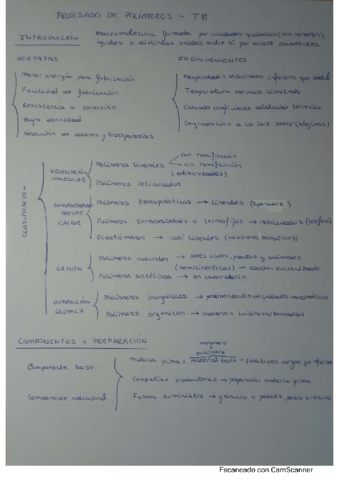 PROCESADO DE POLÍMEROS - T8
INTRODUCCIÓN
Macromolécula formada por unidades químicas (monómeros),
iguales o distintas, unidas entre sí por enlace covalentes
VENTAJAS
INCONVENIENTES
Menor energía para fabricación
Facilidad de fabricación
Resistencia a corrosión
Baja densidad
Selección de colores y transparencias
Propiedades mecánicas inferiores que metal
Temperatura servicio limitada
Elevado coeficiente dilatación térmica
Degradación a la luz solar (algunos)
CLASIFICACIÓN
ORDENACIÓN MOLECULAR
Polímeros lineales
con ramificación
sin ramificación
Polímeros reticulados
COMPORTAMIENTO FRENTE CALOR
Polímeros termoplásticos → lineales
Polímeros termoestables o termofijos → reticulados
Elastómeros → casi lineales
ORIGEN
Polímeros naturales → seres vivos, plantas y animales
(semisintéticos) → caucho vulcanizado
Polímeros sintéticos → en laboratorio
COMPOSICIÓN QUÍMICA
Polímeros inorgánicos →
Polímeros orgánicos → cadenas hidrocarbonadas
COMPONENTES Y PREPARACIÓN
Componente base
Componentes adicional
Materia prima = material base + (aditivos, cargas
Compañías productoras → preparación materia prima
Forma suministro → gránulos o pellets, polvo o
Escaneado con CamScanner